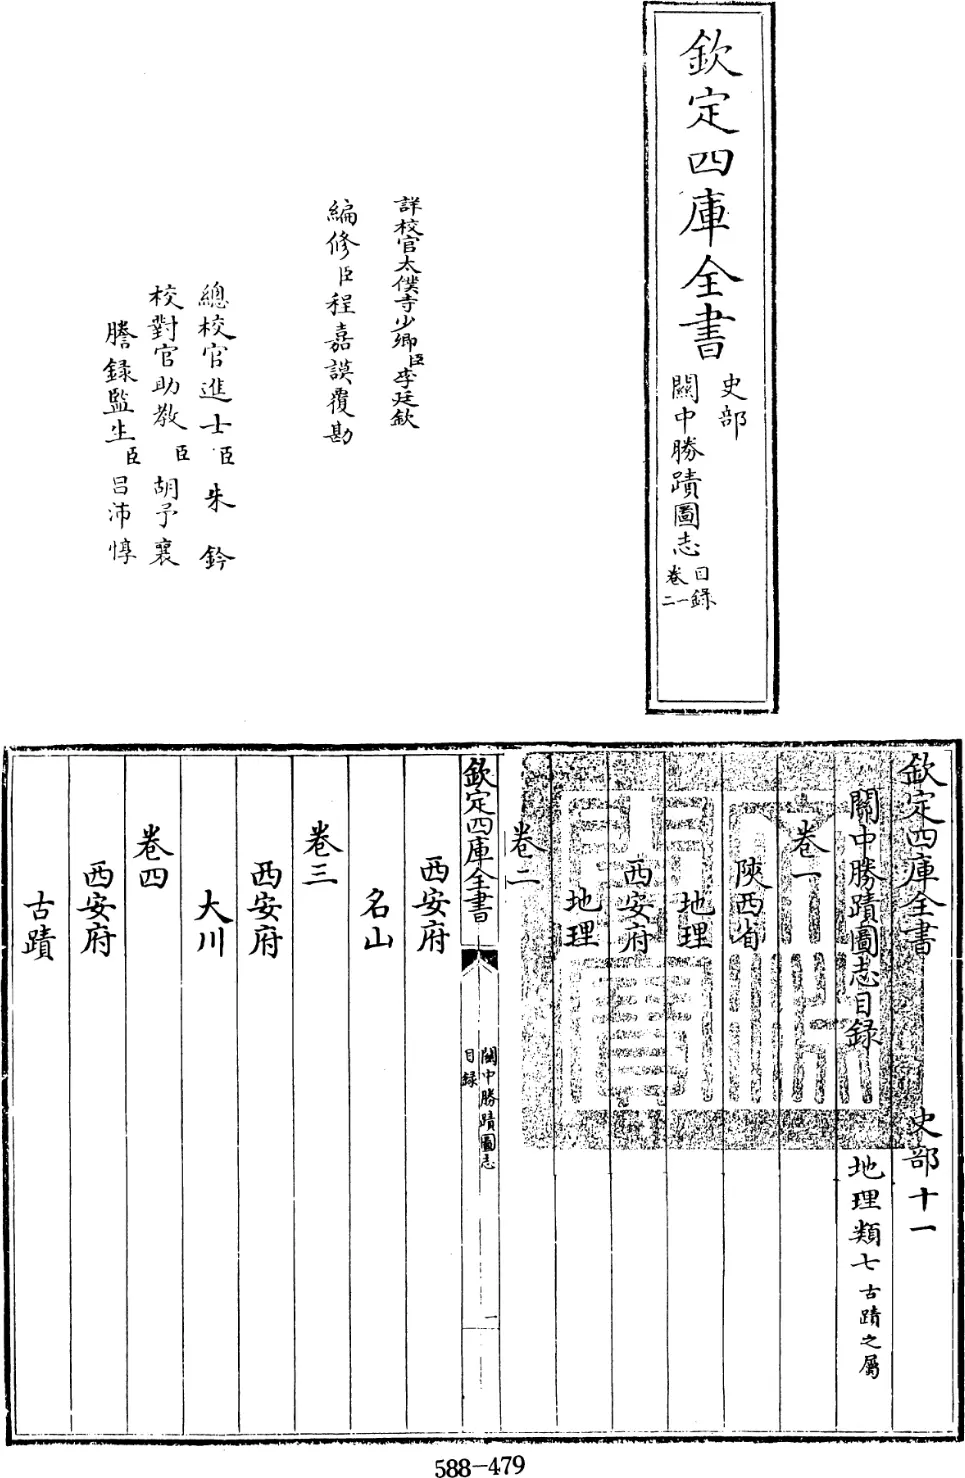 欽定四庫全書
史部
關中勝蹟圖志
目錄
卷一
二
詳校官太僕寺少卿臣李廷欽
編修臣程嘉謨覆勘
總校官進士臣朱鈐
校對官助教臣胡予襄
謄錄監生臣呂沛惇
欽定四庫全書 史部十一
關中勝蹟圖志目錄 地理類七古蹟之屬
卷一
陝西省
地理
西安府
地理
卷二
欽定四庫全書
關中勝蹟圖志
目錄
一
西安府
名山
卷三
西安府
大川
卷四
西安府
古蹟
588-479